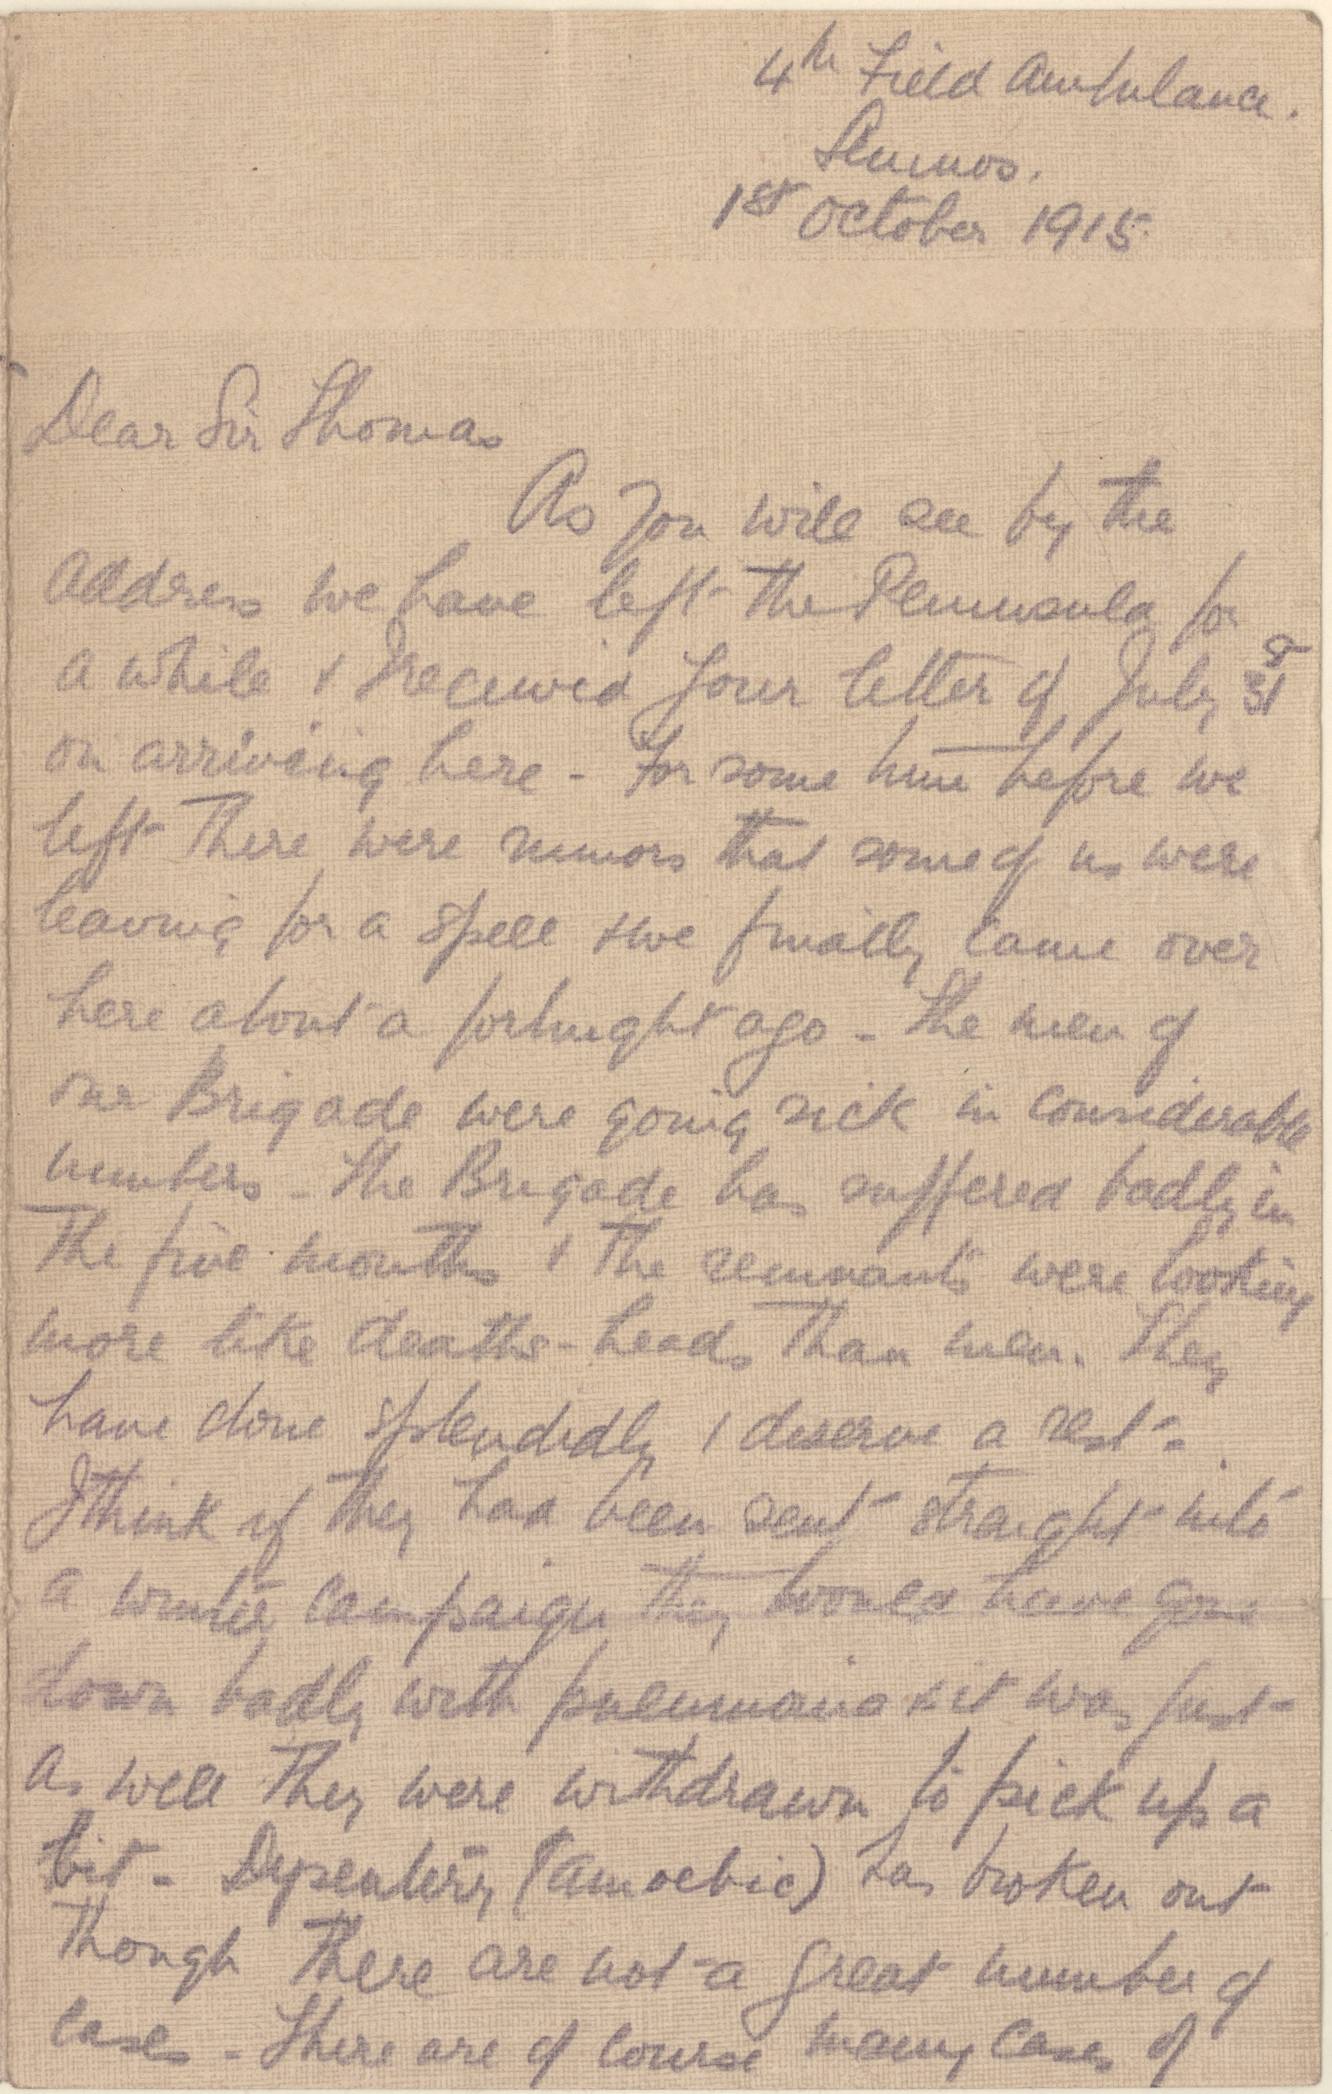 4th Field Ambulance.
Lemnos.
1st October 1915.
Dear Sir Thomas
As you will see by the
address we have left the Peninsula for
a while & I received your letter of July 31st
on arriving here - For some time before we
left there were rumors that some of us were
leaving for a spell & we finally came over
here about a fortnight ago - The men of
our Brigade were going sick in considerable
numbers - The Brigade has suffered badly in
the five months & the remnants were looking
more like deaths-heads than men. They
have done splendidly & deserve a rest -
I think if they had been sent straight into
a winter campaign they would have gone
down badly with pneumonia & it was just
as well they were withdrawn to pick up a
bit - Dysentery (amoebic) has broken out
though there are not a great number of
cases - There are of course many cases of